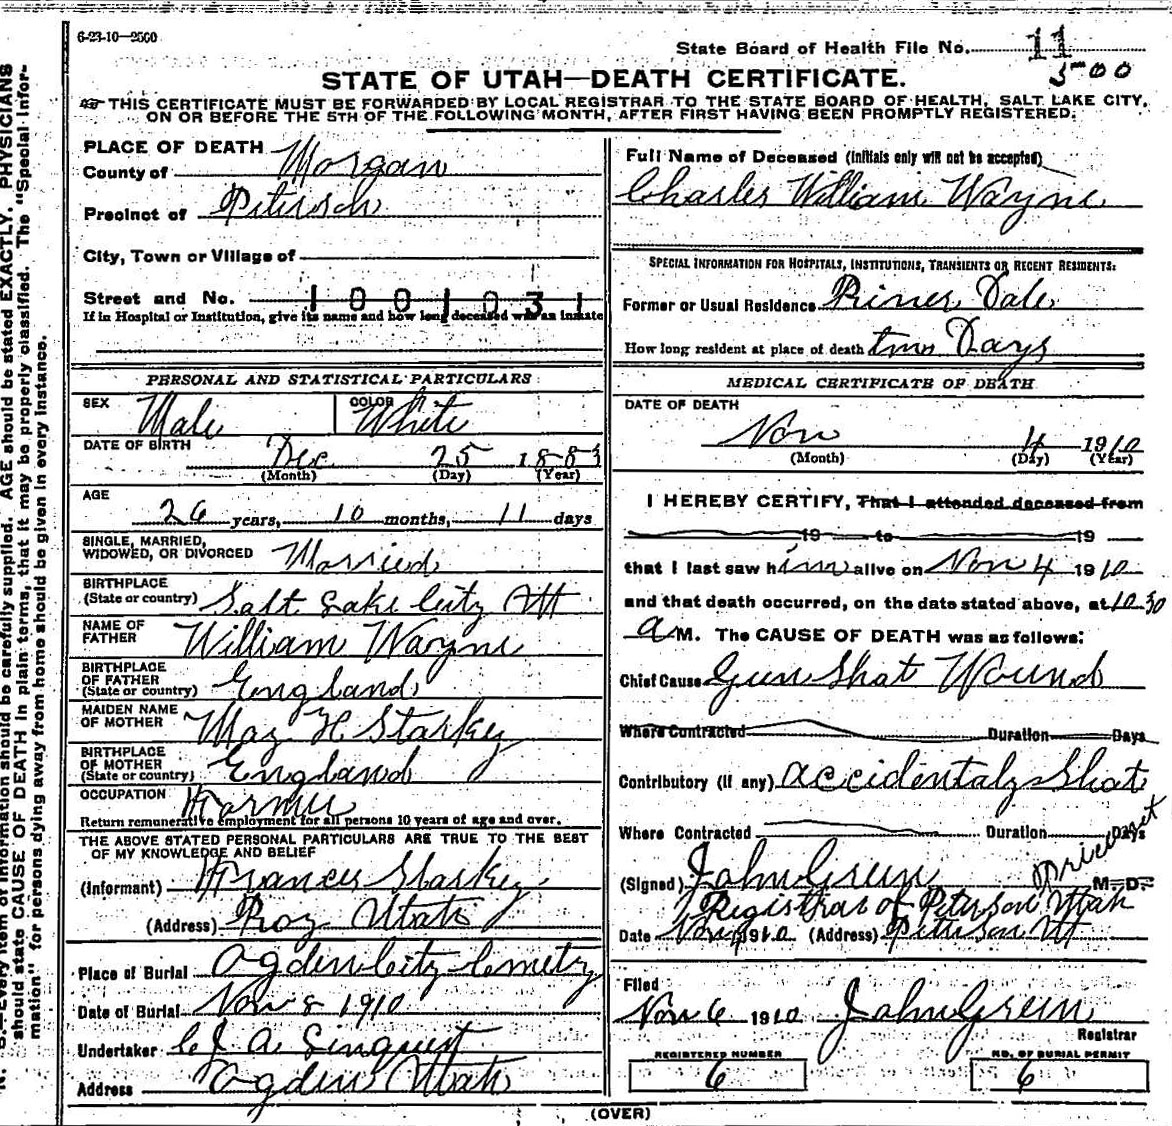 6-23-10—2500
State Board of Health File No. 11
500
STATE OF UTAH—DEATH CERTIFICATE.
THIS CERTIFICATE MUST BE FORWARDED BY LOCAL REGISTRAR TO THE STATE BOARD OF HEALTH, SALT LAKE CITY,
ON OR BEFORE THE 5TH OF THE FOLLOWING MONTH, AFTER FIRST HAVING BEEN PROMPTLY REGISTERED.
PLACE OF DEATH
County of Morgan
Precinct of
City, Town or Village of
Street and No. 1001031
If in Hospital or Institution, give its name and how long deceased was an inmate
PERSONAL AND STATISTICAL PARTICULARS
SEX Male COLOR White
DATE OF BIRTH Dec 25 1883
(Month) (Day) (Year)
AGE
26 years, 10 months, 11 days
SINGLE, MARRIED,
WIDOWED, OR DIVORCED Married
BIRTHPLACE
(State or country) Salt Lake City Ut
NAME OF
FATHER William Wayne
BIRTHPLACE
OF FATHER
(State or country) England
MAIDEN NAME
OF MOTHER May H Starkey
BIRTHPLACE
OF MOTHER
(State or country) England
OCCUPATION Farmer
Return remunerative employment for all persons 10 years of age and over.
THE ABOVE STATED PERSONAL PARTICULARS ARE TRUE TO THE BEST
OF MY KNOWLEDGE AND BELIEF
(Informant) Frances Starkey
(Address) Roy Utah
Place of Burial Ogden City Cemetry
Date of Burial Nov 8 1910
Undertaker A Linquist
Address Ogden Utah
Full Name of Deceased (Initials only will not be accepted)
Charles William Wayne
SPECIAL INFORMATION FOR HOSPITALS, INSTITUTIONS, TRANSIENTS OR RECENT RESIDENTS:
Former or Usual Residence River Dale
How long resident at place of death two Days
MEDICAL CERTIFICATE OF DEATH
DATE OF DEATH
Nov 4 1910
(Month) (Day) (Year)
I HEREBY CERTIFY, That I attended deceased from
19 to 19
that I last saw him alive on Nov 4 1910
and that death occurred, on the date stated above, at 10.30
a M. The CAUSE OF DEATH was as follows:
Chief Cause Gun Shat Wound
Where Contracted Duration Days
Contributory (if any) accidentaly Shat
Where Contracted Duration Days
(Signed) John Green M.D.
Registrar of Peterson Utah
Date Nov 1910 (Address) Peterson Ut
Filed
Nov 6 1910 John Green
Registrar
REGISTERED NUMBER
6
NO. OF BURIAL PERMIT
6
(OVER)
N. B.—Every item of information should be carefully supplied. AGE should be stated EXACTLY. PHYSICIANS
should state CAUSE OF DEATH in plain terms, that it may be properly classified. The "Special Infor-
mation" for persons dying away from home should be given in every instance.